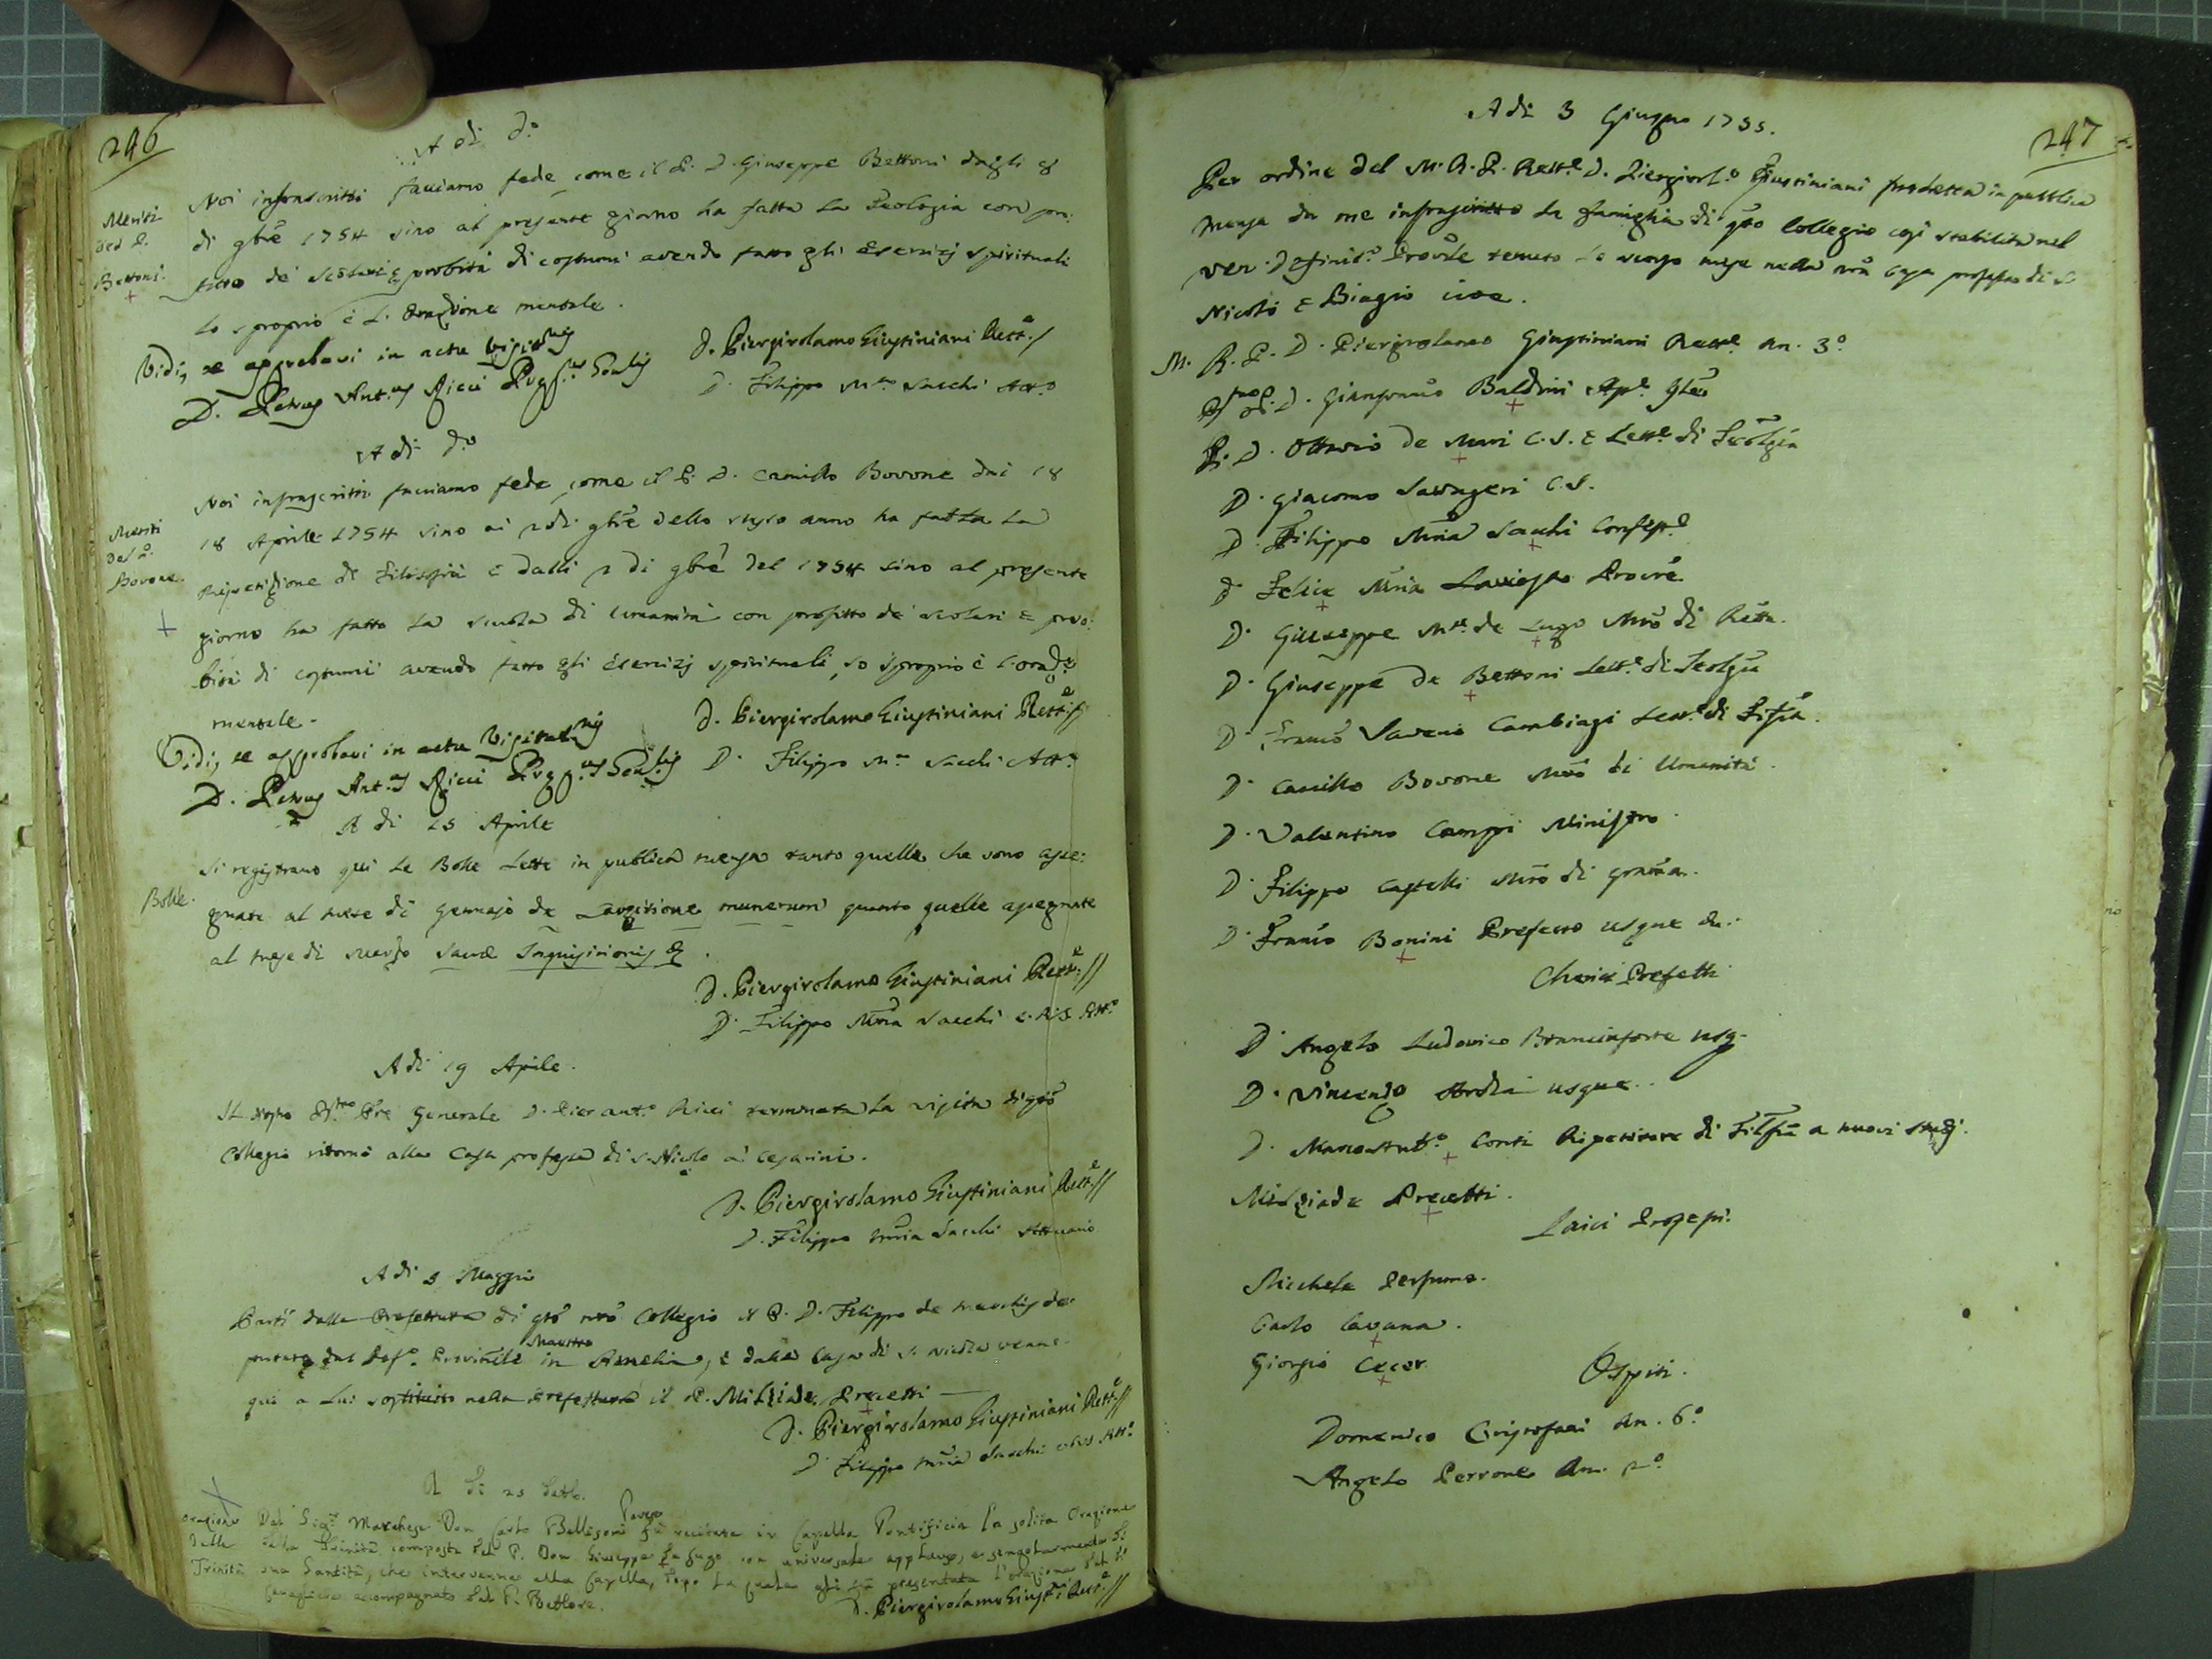 246
A di d.o
Meriti del P. Bettoni.
Noi infrascritti facciamo fede, come il P. D. Giuseppe Bettoni dagli 8
di 9bre 1754 sino al presente giorno ha fatta la Teologia con pro:
fitto de' scolari e probità di costumi avendo fatto gli Esercizj spirituali
lo sproprio e l'orazione mentale.
Vidi, et approbavi in actu visitnis
D. Petrus Ant.us Ricci Prep.tus Gen.lis
D. Piergirolamo Giustiniani Rett.e
D. Filippo M.a Sacchi Att.o
A di d.o
Meriti del P. Bovone.
Noi infrascritti facciamo fede, come il P. D. Camillo Bovone dai 18
18 Aprile 1754 sino ai 2 di 9bre dello stesso anno ha fatta la
Ripetizione di Filosofia e dalli 2 di 9bre del 1754 sino al presente
giorno ha fatto la scuola di umanità con profitto de' scolari e pro:
bità di costumi avendo fatto gli Esercizj spirituali, lo sproprio e l'oraz.e
mentale.
Vidi, et approbavi in actu Visitatnis
D. Petrus Ant.us Ricci Prep.tus Gen.lis
D. Piergirolamo Giustiniani Rett.e
D. Filippo M.a Sacchi Att.o
A di 15 Aprile
Bolle.
Si registrano qui le Bolle lette in publica mensa tanto quelle che sono asse:
gnate al mese di Gennajo de Largitione munerum quanto quelle assegnate
al mese di Marzo Sanctæ Inquisitionis &
D. Piergirolamo Giustiniani Rett.e
D. Filippo Mria Sacchi C.R.S. Att.o
A di 19 Aprile.
Il nostro Rmo Pre Generale D. Pier Ant.o Ricci terminata la visita di qto
Collegio ritornò alla Casa professa di S. Nicolò ai Cesarini.
D. Piergirolamo Giustiniani Rett.e
D. Filippo Mria Sacchi Attuario
A di 3 Maggio
Partì dalla Prefettura di qto nro Collegio il P. D. Filippo de
putato dal Def.o Provinle Maestro in Amelia, e dalla Casa di S. Nicolò venne
qui a lui sostituito nella Prefettura il P. Milziade Precetti
D. Piergirolamo Giustiniani Rett.e
D. Filippo Mria Sacchi CRS Att.o
A di 25
Orazione della Trinità
Dal Sig.r Marchese Don Carlo Bellisomi Pavese fù recitata in Capella Pontificia la solita Orazione
della Trinità composta dal P. Don Giuseppe de Lugo con universale applauso, e singolarmente di
sua Santità, che intervenne alla Capella, dopo la quale gli fù presentata l'orazione dal d.o
Cavagliere accompagnato dal P. Rettore.
D. Piergirolamo Giustini Rett.e
247
A di 3 Giugno 1755.
Per ordine del M. R. P. Rett.e D. Piergirol.o Giustiniani fu letta in publica
mensa da me infrascritto la famiglia di qto Collegio così stabilita nel
ven. Definit.o Provle tenuto lo scorso mese nella nra Casa professa di S.
Nicolò e Biagio cioè.
M. R. P. D. Piergirolamo Giustiniani Rett.e An. 3.o
Rmo P. D. Gianfranco Baldini
P. D. Ottavio de Mari C. S. e Lett.e di Teolgia
D. Giacomo Savageri C.S.
D. Filippo Mria Sacchi Confess.e
D. Felice Mria Proure
D. Giuseppe M.a de Lugo Mro di Rett.
D. Giuseppe de Bettoni Lett.e di Teolgia
D. Franco Saverio Cambiagi Lett.e di Filfia.
D. Camillo Bovone Mro di Umanità.
D. Valentino Campi Ministro.
D. Filippo Castelli Mro di Grama.
D. Franco Bonini Prefetto usque
Chierici Prefetti
D. Angelo Ludovico Branciforte usq.
D. Vincenzo usque.
D. Marcant.o Conti Ripetitore di Filfia a nuovi studj.
Milziade Precetti.
Laici Professi.
Michele Perfumo.
Carlo Cavana.
Giorgio Cecer
Ospiti.
Domenico An. 6.o
Angelo Perrone An. 2.o